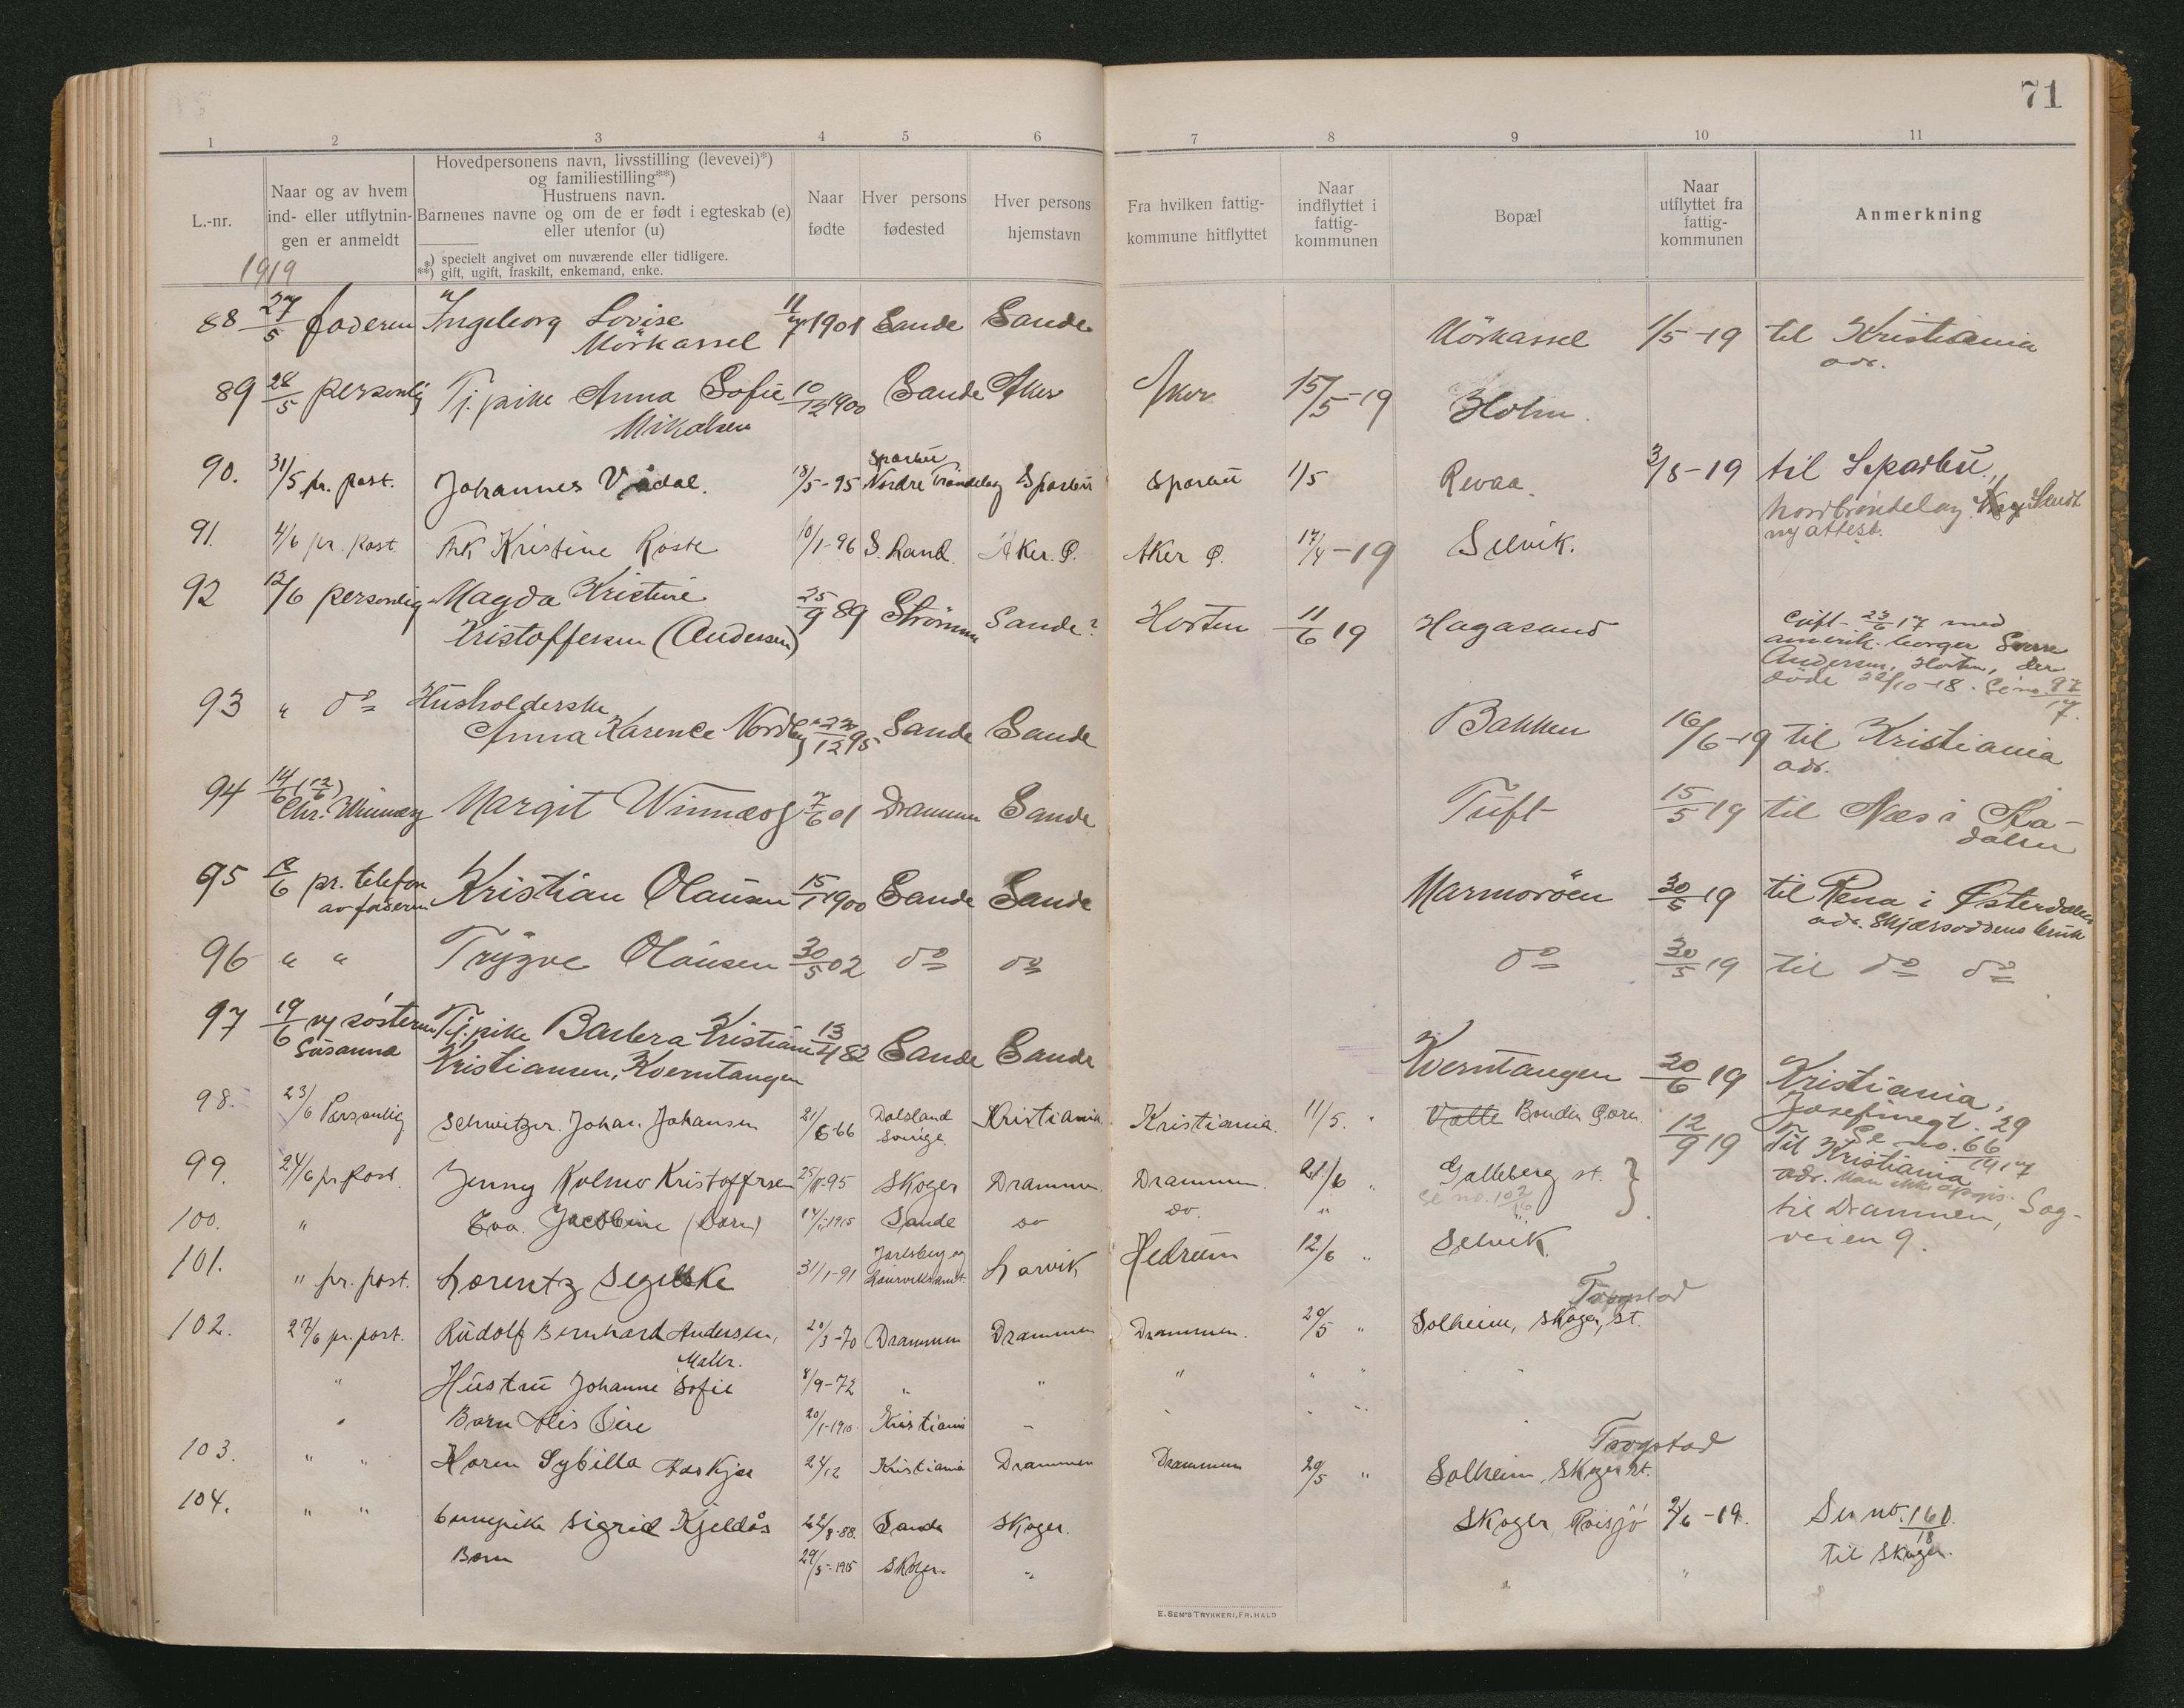 71
1 2 3 4 5 6 7 8 9 10 11
L.-nr.
Naar og av hvem
ind- eller utflytnin-
gen er anmeldt
Hovedpersonens navn, livsstilling (levevei)*)
og familiestilling**)
Hustruens navn.
Barnenes navne og om de er født i egteskab (e)
eller utenfor (u)
*) specielt angivet om nuværende eller tidligere.
**) gift, ugift, fraskilt, enkemand, enke.
Naar
fødte
Hver persons
fødested
Hver persons
hjemstavn
Fra hvilken fattig-
kommune hitflyttet
Naar
indflyttet i
fattig-
kommunen
Bopæl
Naar
utflyttet fra
fattig-
kommunen
Anmerkning
1919
88 27/5 faderen Ingeborg Lovise 11/7 1901 Sande Sande Mörkassel 1/5-19 til Kristiania
Mörkassel adr.
89 28/5 personlig Tj. pike Anna Sofie 10/12 1900 Sande Aker Aker 15/5-19 Holm.
Mikalsen
90. 31/5 pr. post. Johannes Vådal. 18/5-95 Sparbu Nordre Trøndelag Sparbu Sparbu 1/5 Revaa. 3/8-19 til Sparbu,
Nordtrøndelag. Sendt
ny attest.
91. 4/6 pr. post. Frk Kristine Roste 10/1-96 S. Land. Aker. P. Aker P. 17/4-19 Selvik.
92 12/6 personlig Magda Kristine 25/9 89 Strömm Sande? Horten 11/6 19 Hagasand Gift 23/6 17 med
Kristoffersen (Andersen) amerik. borger Sverre
Andersen, Horten, der
døde 22/10-18. Se no. 97/17.
93 " do Husholderske
Anna Karense Nordby 22/12 95 Sande Sande Bakken 16/6-19 til Kristiania
adr.
94 14/6 (12/6)
Chr. Winnæs Margit Winnæs 7/6 01 Drammen Sande Tuft 15/5 19 til Næs i
dalen
95 18/6 pr. telefon Kristian Olausen 15/1 1900 Sande Sande Marmoröen 30/5 19 til Rena i Østerdalen
av faderen adr. Skjærsoddens bruk
96 " " Trygve Olausen 30/5 02 do do do 30/5 19 til do do
97 19/6 ny søsteren Tj. pike Barbra Kristiane 13/4 82 Sande Sande Kverntangen 20/6 19 Kristiania,
Susanna Kristiansen, Kverntangen Josefinegt. 29
Se no. 66/1917
98. 23/6 Personlig Schweitzer. Johan Johansen 21/6-66 Dalsland Sverige. Kristiania. Kristiania. 11/5. " Valle Bonden Garen. 12/9 19 Til Kristiania
adr. kan ikke opgis.
99. 24/6 pr post. Jenny Kolmo Kristoffersen 25/11-95 Skoger Drammen. Drammen. 21/6 " Galleberg st. } til Drammen, Sag-
Se no. 102/16 veien 9.
100. " Eva Jacobine (barn) 14/1-1915 Sande do do. "
101. " pr. post. Lorentz Segelske 31/1-91 Jarlsberg og Laurviks amt. Larvik Hedrum 12/6 " Selvik.
102. 27/6 pr. post. Rudolf Bernhard Andersen, 20/3-70 Drammen Drammen Drammen. 20/5 " Trogstad Solheim, Skoger, st.
Malr.
" Hustru Johanne Sofie 8/9-72 " " " " "
" Barn Alis 20/1-1910. Kristiania -
103. " " Karen Sybilla Aaskjær 24/12 Kristiania Drammen Drammen 20/5 " Trogstad Solheim, Skoger st.
104. " " Sigrid Kjeldås 22/8-88. Sande Skoger. Skoger, Röisjö 2/6-19. Se no. 160/18.
Barn 29/5-1915 Skoger. " " " til Skoger.
E. SEM'S TRYKKERI, FR.HALD